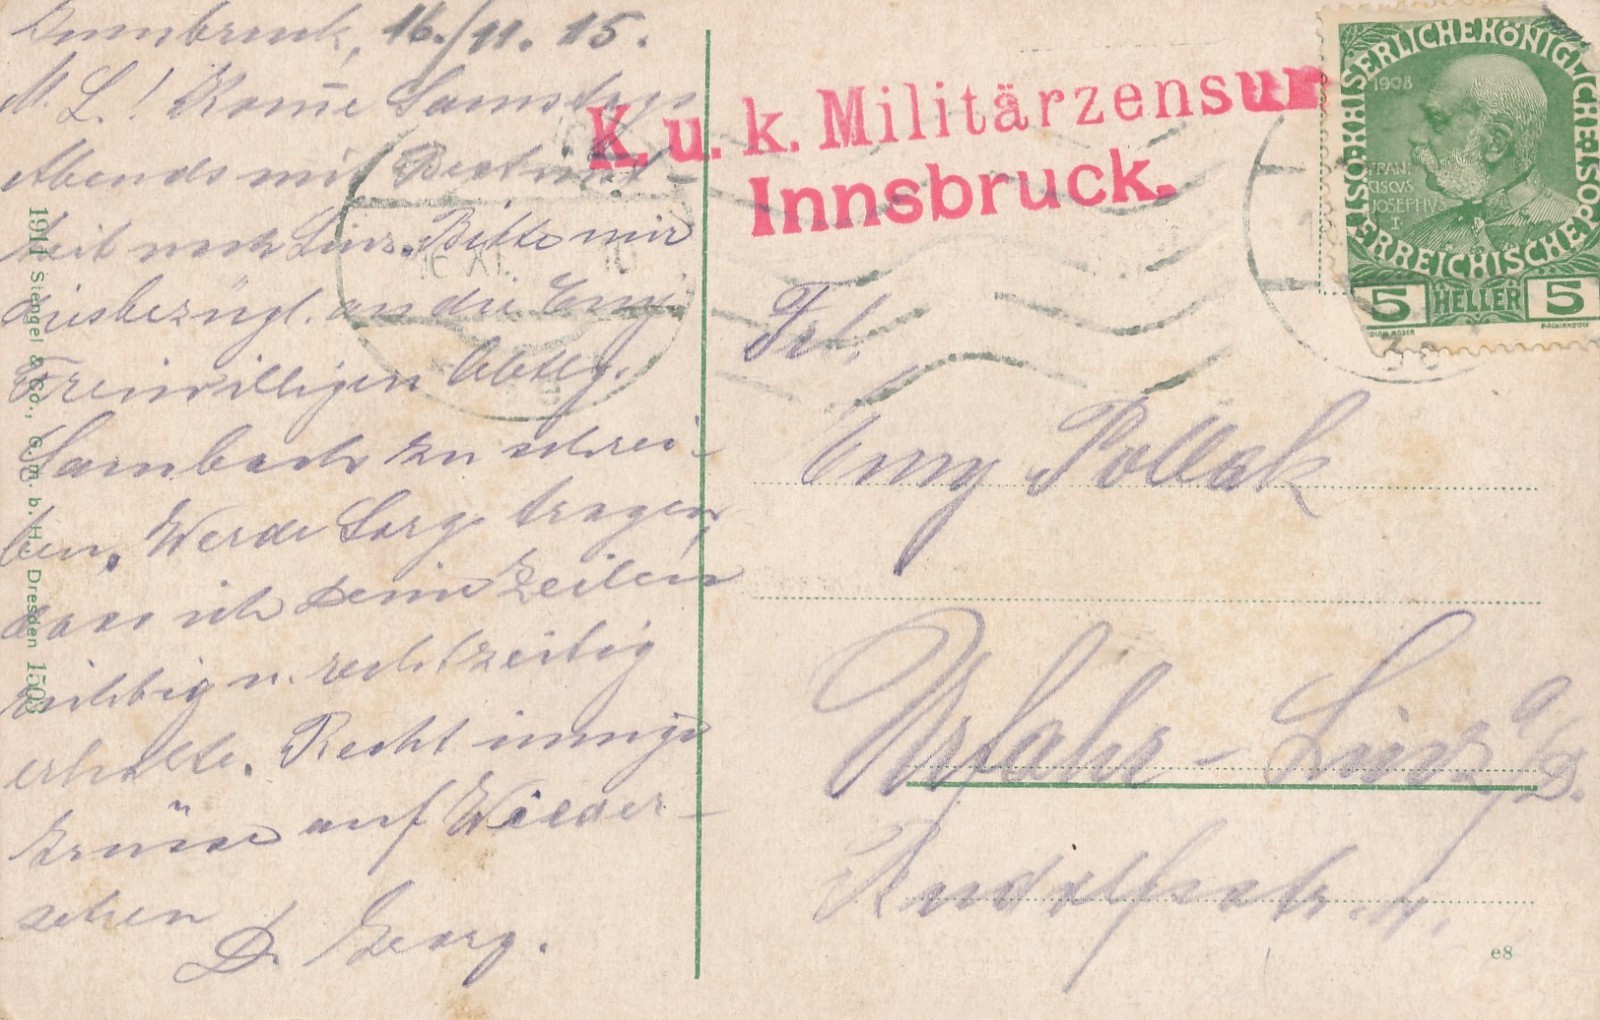 Innsbruck, 16./11. 15.
M. L.! Kome Samstags
Abends mit Bestimt-
heit nach Linz. Bitte mir
diesbezügl. an die Einj.
Freiwilligen Abtlg.
zu schrei-
ben. Werde Sorge tragen,
dass ich Deine Zeilen
richtig u. rechtzeitig
erhalte. Recht innige
Grüsse auf Wieder-
sehen
D. Georg.
1911 Stengel & Co., G. m. b. H., Dresden 1503
K. u. k. Militärzensur
Innsbruck.
KAISERLICHE KÖNIGLICHE ÖSTERREICHISCHE POST
1908
FRAN.
CISCVS
JOSEPHVS
I.
5 HELLER 5
Frl.
Emy Pollak
Urfahr - Linz a/D.
Rudolfstr.
e8